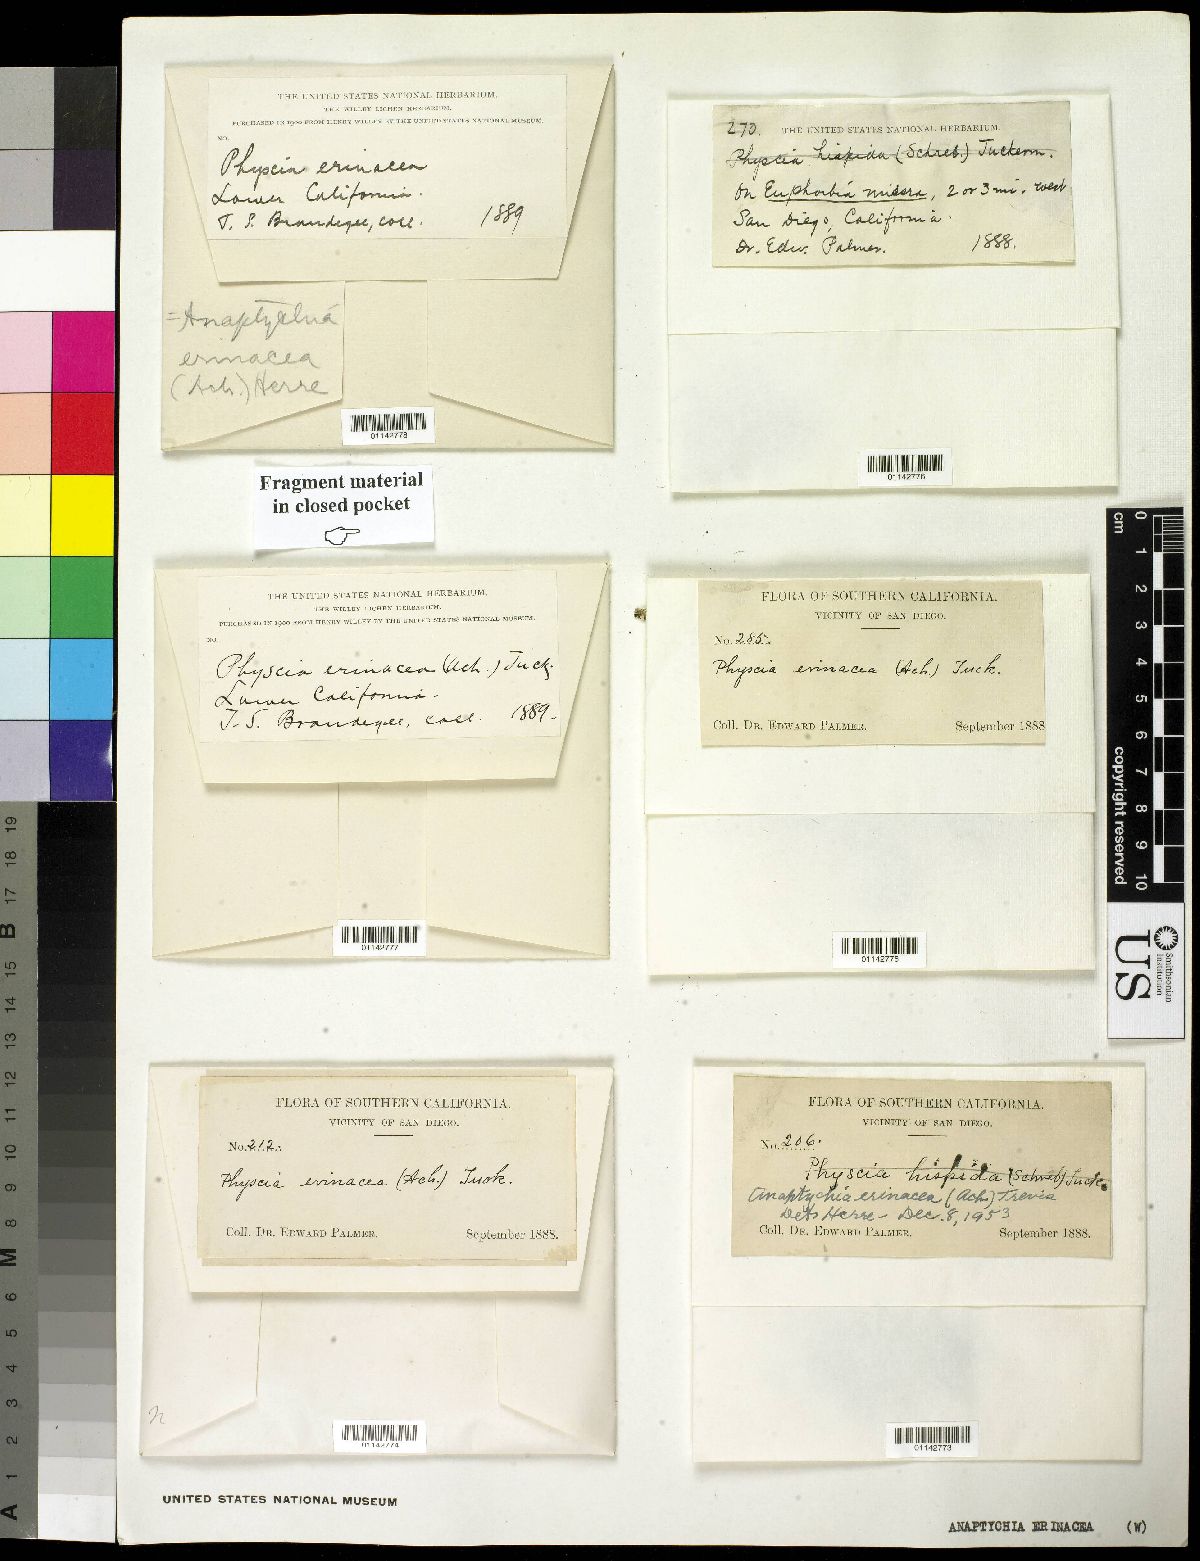 THE UNITED STATES NATIONAL HERBARIUM.
THE WILLEY LICHEN HERBARIUM.
PURCHASED IN 1900 FROM HENRY WILLEY BY THE UNITED STATES NATIONAL MUSEUM.
NO.
Physcia erinacea
Lower California.
T. S. Brandegee, coll. 1889
=Anaptychia
erinacea
(Ach.) Herre
01142778
Fragment material
in closed pocket
270. THE UNITED STATES NATIONAL HERBARIUM.
Physcia hispida (Schreb.) Tuckerm.
On Euphorbia misera, 2 or 3 mi. west
San Diego, California.
Dr. Edw. Palmer. 1888.
01142776
THE UNITED STATES NATIONAL HERBARIUM.
THE WILLEY LICHEN HERBARIUM.
PURCHASED IN 1900 FROM HENRY WILLEY BY THE UNITED STATES NATIONAL MUSEUM.
NO.
Physcia erinacea (Ach.) Tuck.
Lower California.
T. S. Brandegee, coll. 1889.
01142777
FLORA OF SOUTHERN CALIFORNIA.
VICINITY OF SAN DIEGO.
No. 285.
Physcia erinacea (Ach.) Tuck.
Coll. DR. EDWARD PALMER. September 1888
01142775
FLORA OF SOUTHERN CALIFORNIA.
VICINITY OF SAN DIEGO.
No. 212.
Physcia erinacea (Ach.) Tuck.
Coll. DR. EDWARD PALMER. September 1888.
n
01142774
FLORA OF SOUTHERN CALIFORNIA.
VICINITY OF SAN DIEGO.
No. 206.
Physcia hispida (Schreb) Tuck.
Anaptychia erinacea (Ach.) Trevis
Det. Herre - Dec. 8, 1953
Coll. DR. EDWARD PALMER. September 1888.
01142773
UNITED STATES NATIONAL MUSEUM
ANAPTYCHIA ERINACEA (W)
cm 0 1 2 3 4 5 6 7 8 9 10
copyright reserved
US
Smithsonian
Institution
A 1 2 3 4 5 6 M 8 9 10 11 12 13 14 15 B 17 18 19